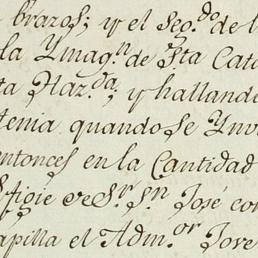 brazos; y el seg.do de l
la Ymag.n de Sta Cata
ta Haz.da; y halland
tenia quando se Ynv
entonces en la Cantidad
efigie de Sr. Sn. José con
apilla el Adm.or Jove